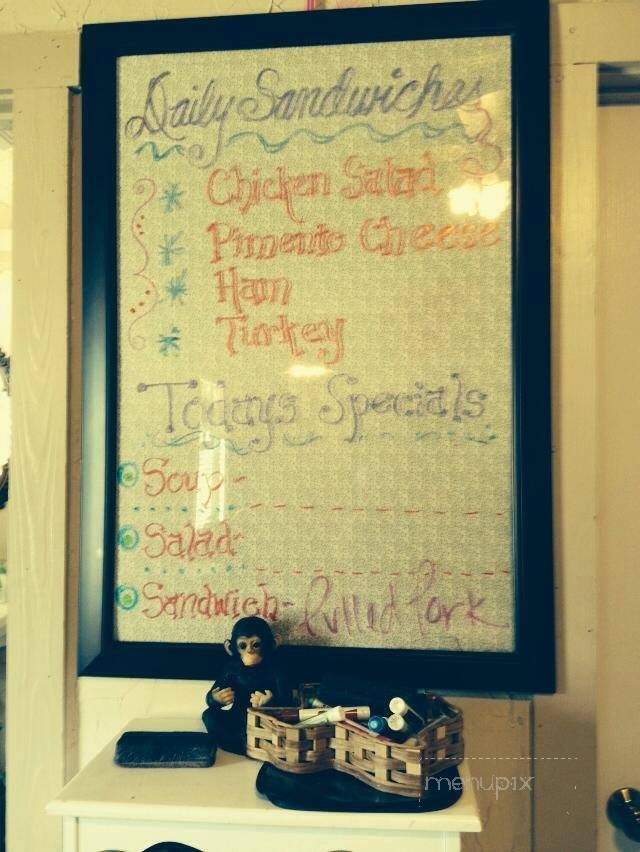 Daily Sandwiches
Chicken Salad
Pimento Cheese
Ham
Turkey
Today's Specials
Soup -
Salad-
Sandwich- Pulled Pork
menupix